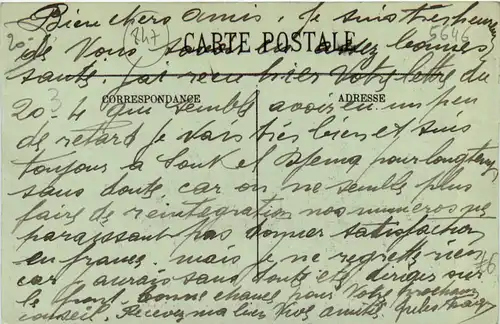 Bien chers amis. Je suis tres heureux
20.3 847 5646
CARTE POSTALE
de vous savoir en assez bonnes
santé. J'ai reçu hier votre lettre du
CORRESPONDANCE ADRESSE
20-4 qui semble avoir eu un peu
de retard je vais très bien et suis
toujours a Souk el Djema pour longtemps
sans doute car on ne semble plus
faire de reintegration nos numeros ne
paraissant pas donner satisfaction
en france. mais je ne regrette rien
car j'aurais sans doute été dirigé sur
le front. bonne chance pour votre prochain
conseil. Recevez ma bien vive amitié